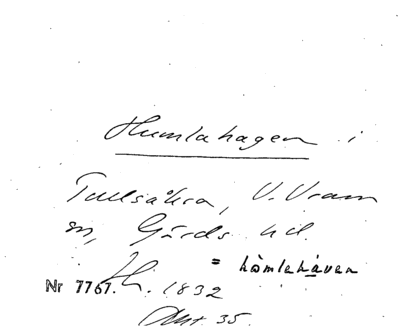 Humlahagen i
Tullsåkra, V. Vram
sn, Gärds hd.
= hòmlehaven
Nr 7767. 1832
Akt 35.